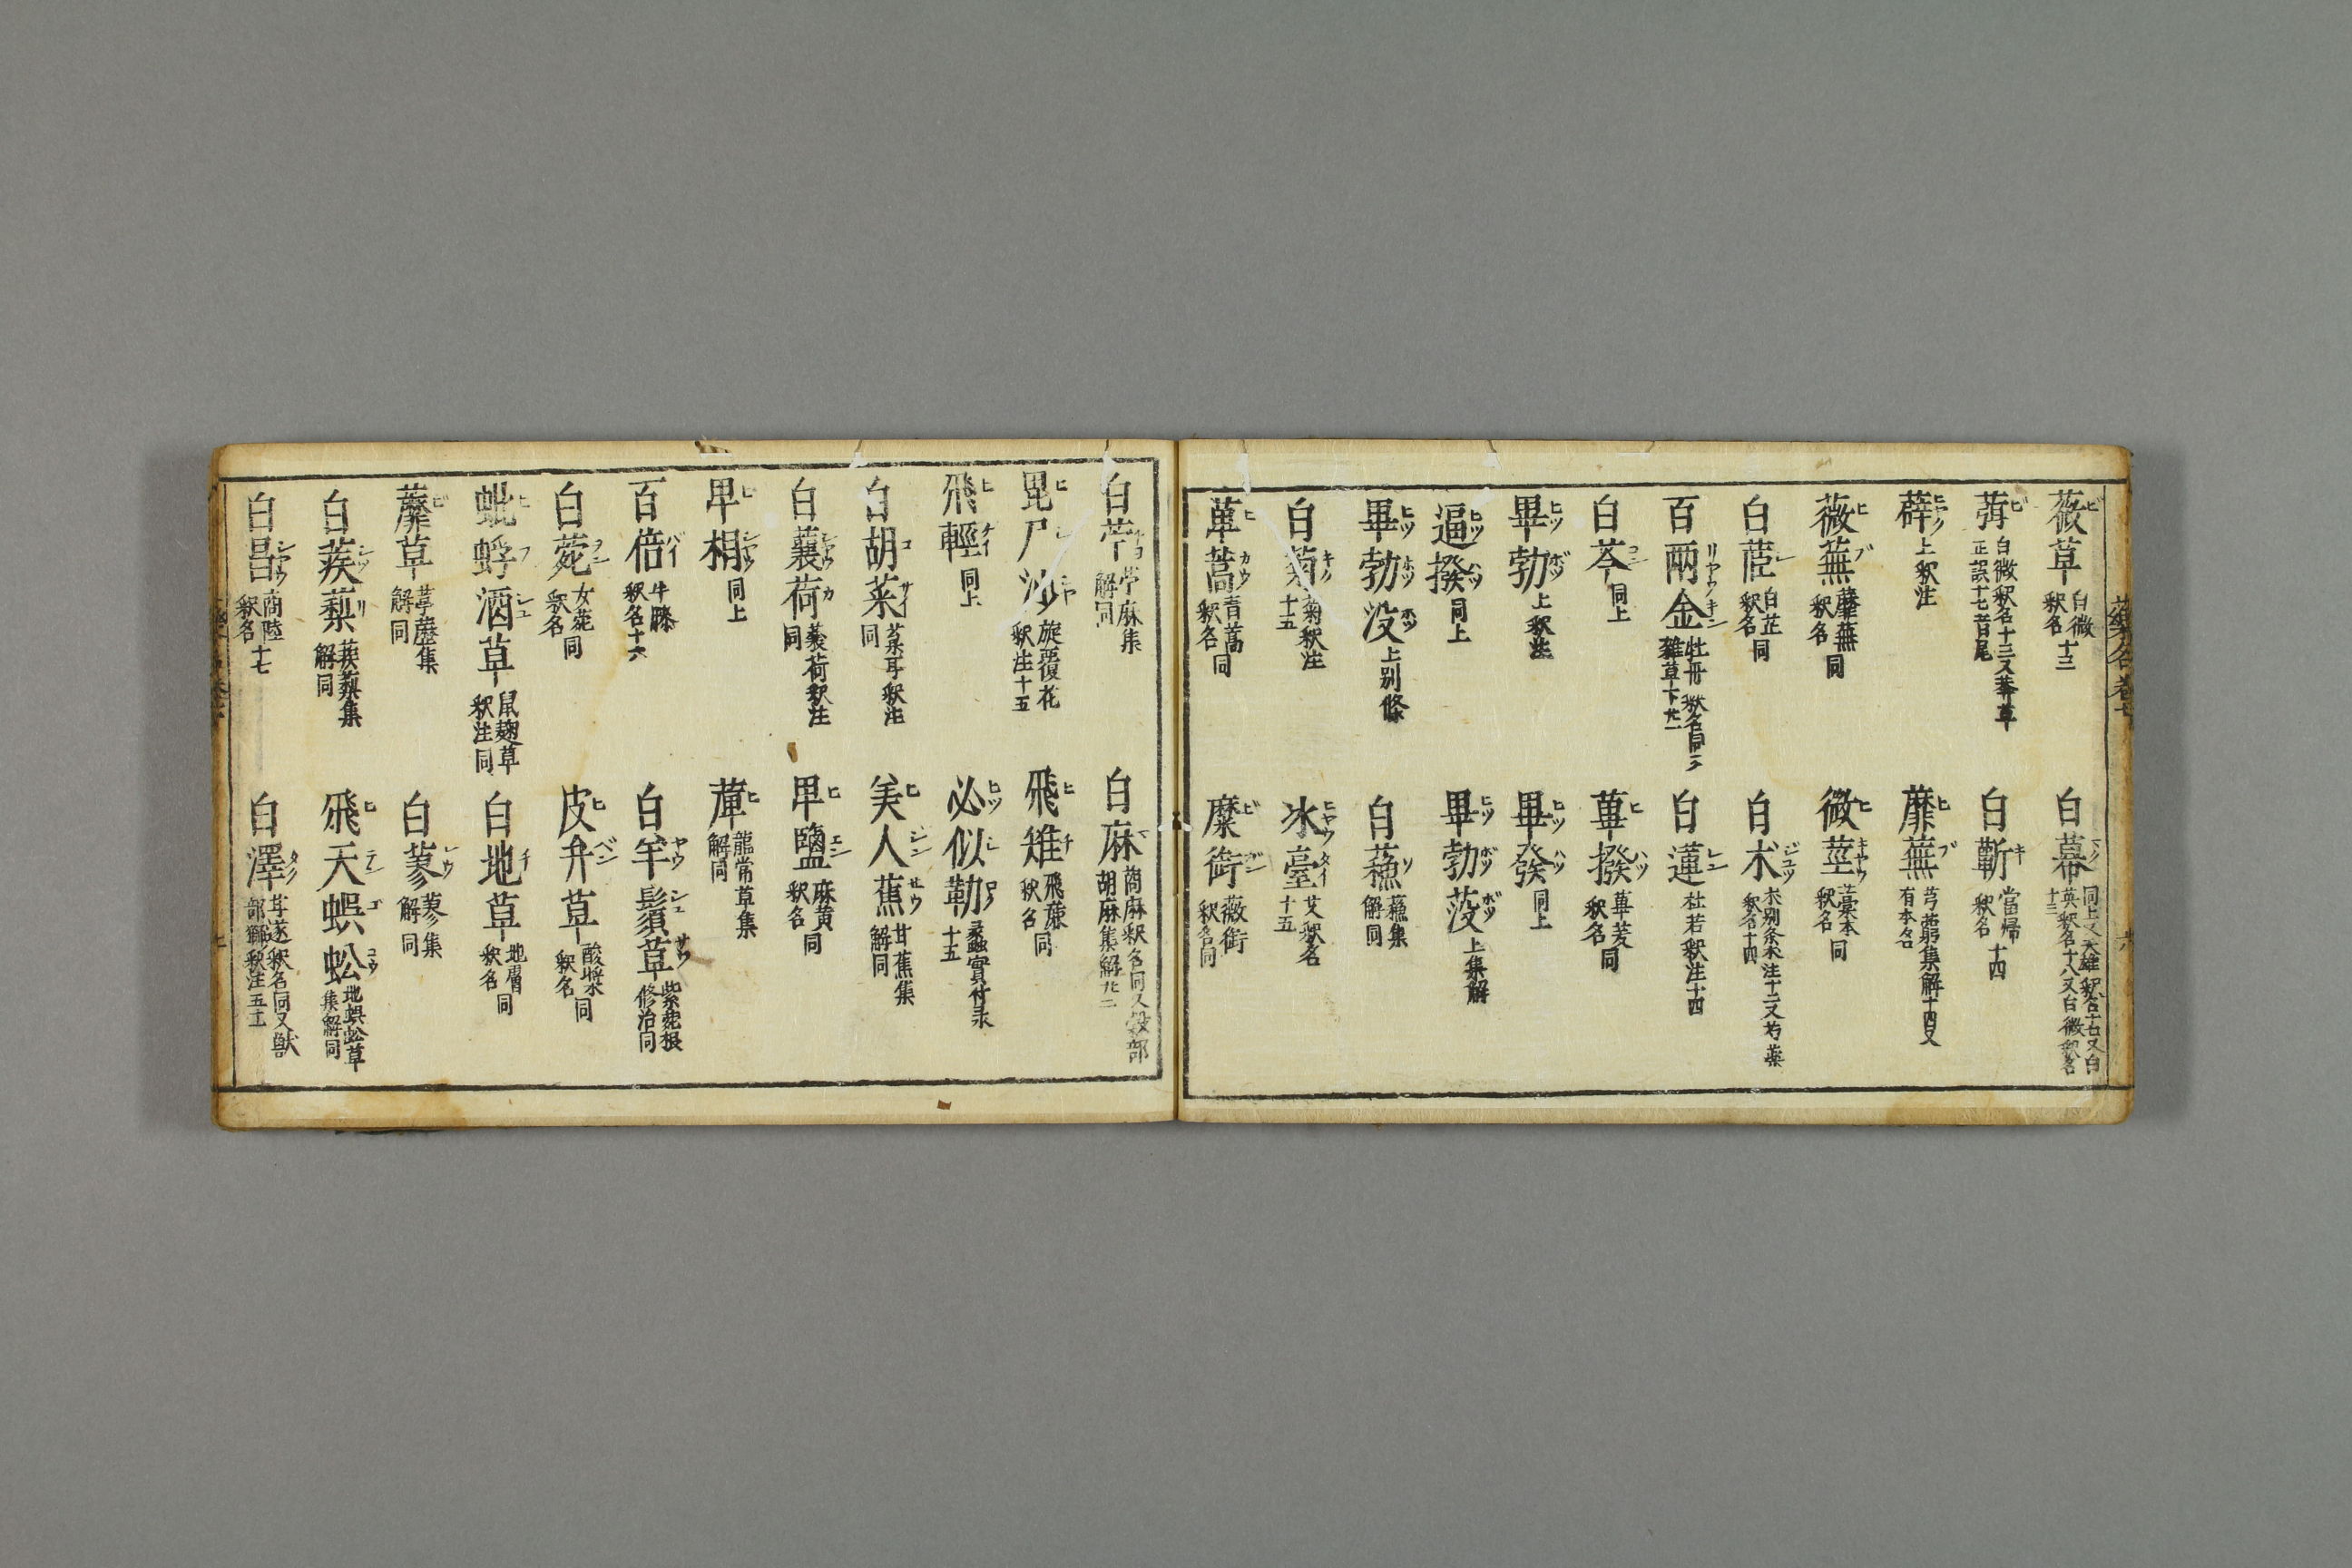 薇草 白微釈名十三
白幕 同上又天雄釈名十七又白英釈名十八又白微釈名十三
葞 白微釈名十三又莽草正誤十七昔尾
白蘄 當帰釈名十四
薜 上釈注
蘼蕪 芎藭集解十四又有本名
薇蕪 蘼蕪釈名同
微莖 藁本釈名同
白茝 白芷釈名同
白朮 朮別条 朮注十二又芍薬釈名十四
百兩金 牡丹釈名同又雜草下廿一
白蓮 杜若釈注十四
白芩 同上
蓽撥 蓽茇釈名同
畢勃 上釈注
畢發 同上
逼撥 同上
畢勃茇 上集解
畢勃没 上別條
白蘓 蘓集解同
白菊 菊釈注十五
冰臺 艾釈名十五
萆蒿 青蒿釈名同
麋銜 薇銜釈名同
白苧 苧麻集解同
白麻 䔛麻釈名同又穀部胡麻集解廿二
毘尸沙 旋覆花釈注十五
飛雉 飛廉釈名同
飛輕 同上
必似勒 蠡實付录十五
白胡荽 菜耳釈注同
美人蕉 甘蕉集解同
白蘘荷 蘘荷釈注同
卑鹽 麻黄釈名同
卑相 同上
萆 龍常草集解同
百倍 牛膝釈名十六
白羊鬚草 紫菀根修治同
白菀 女菀釈名同
皮弁草 酸漿釈名同
蚍蜉酒草 鼠麹草釈注同
白地草 地膚釈名同
蘼草 葶藶集解同
白蓼 蓼集解同
白蒺藜 蒺藜集解同
飛天蜈蚣 地蜈蚣草集解同
白昌 商陸釈名十七
白澤 甘遂釈名同又獣部獅釈注五十一